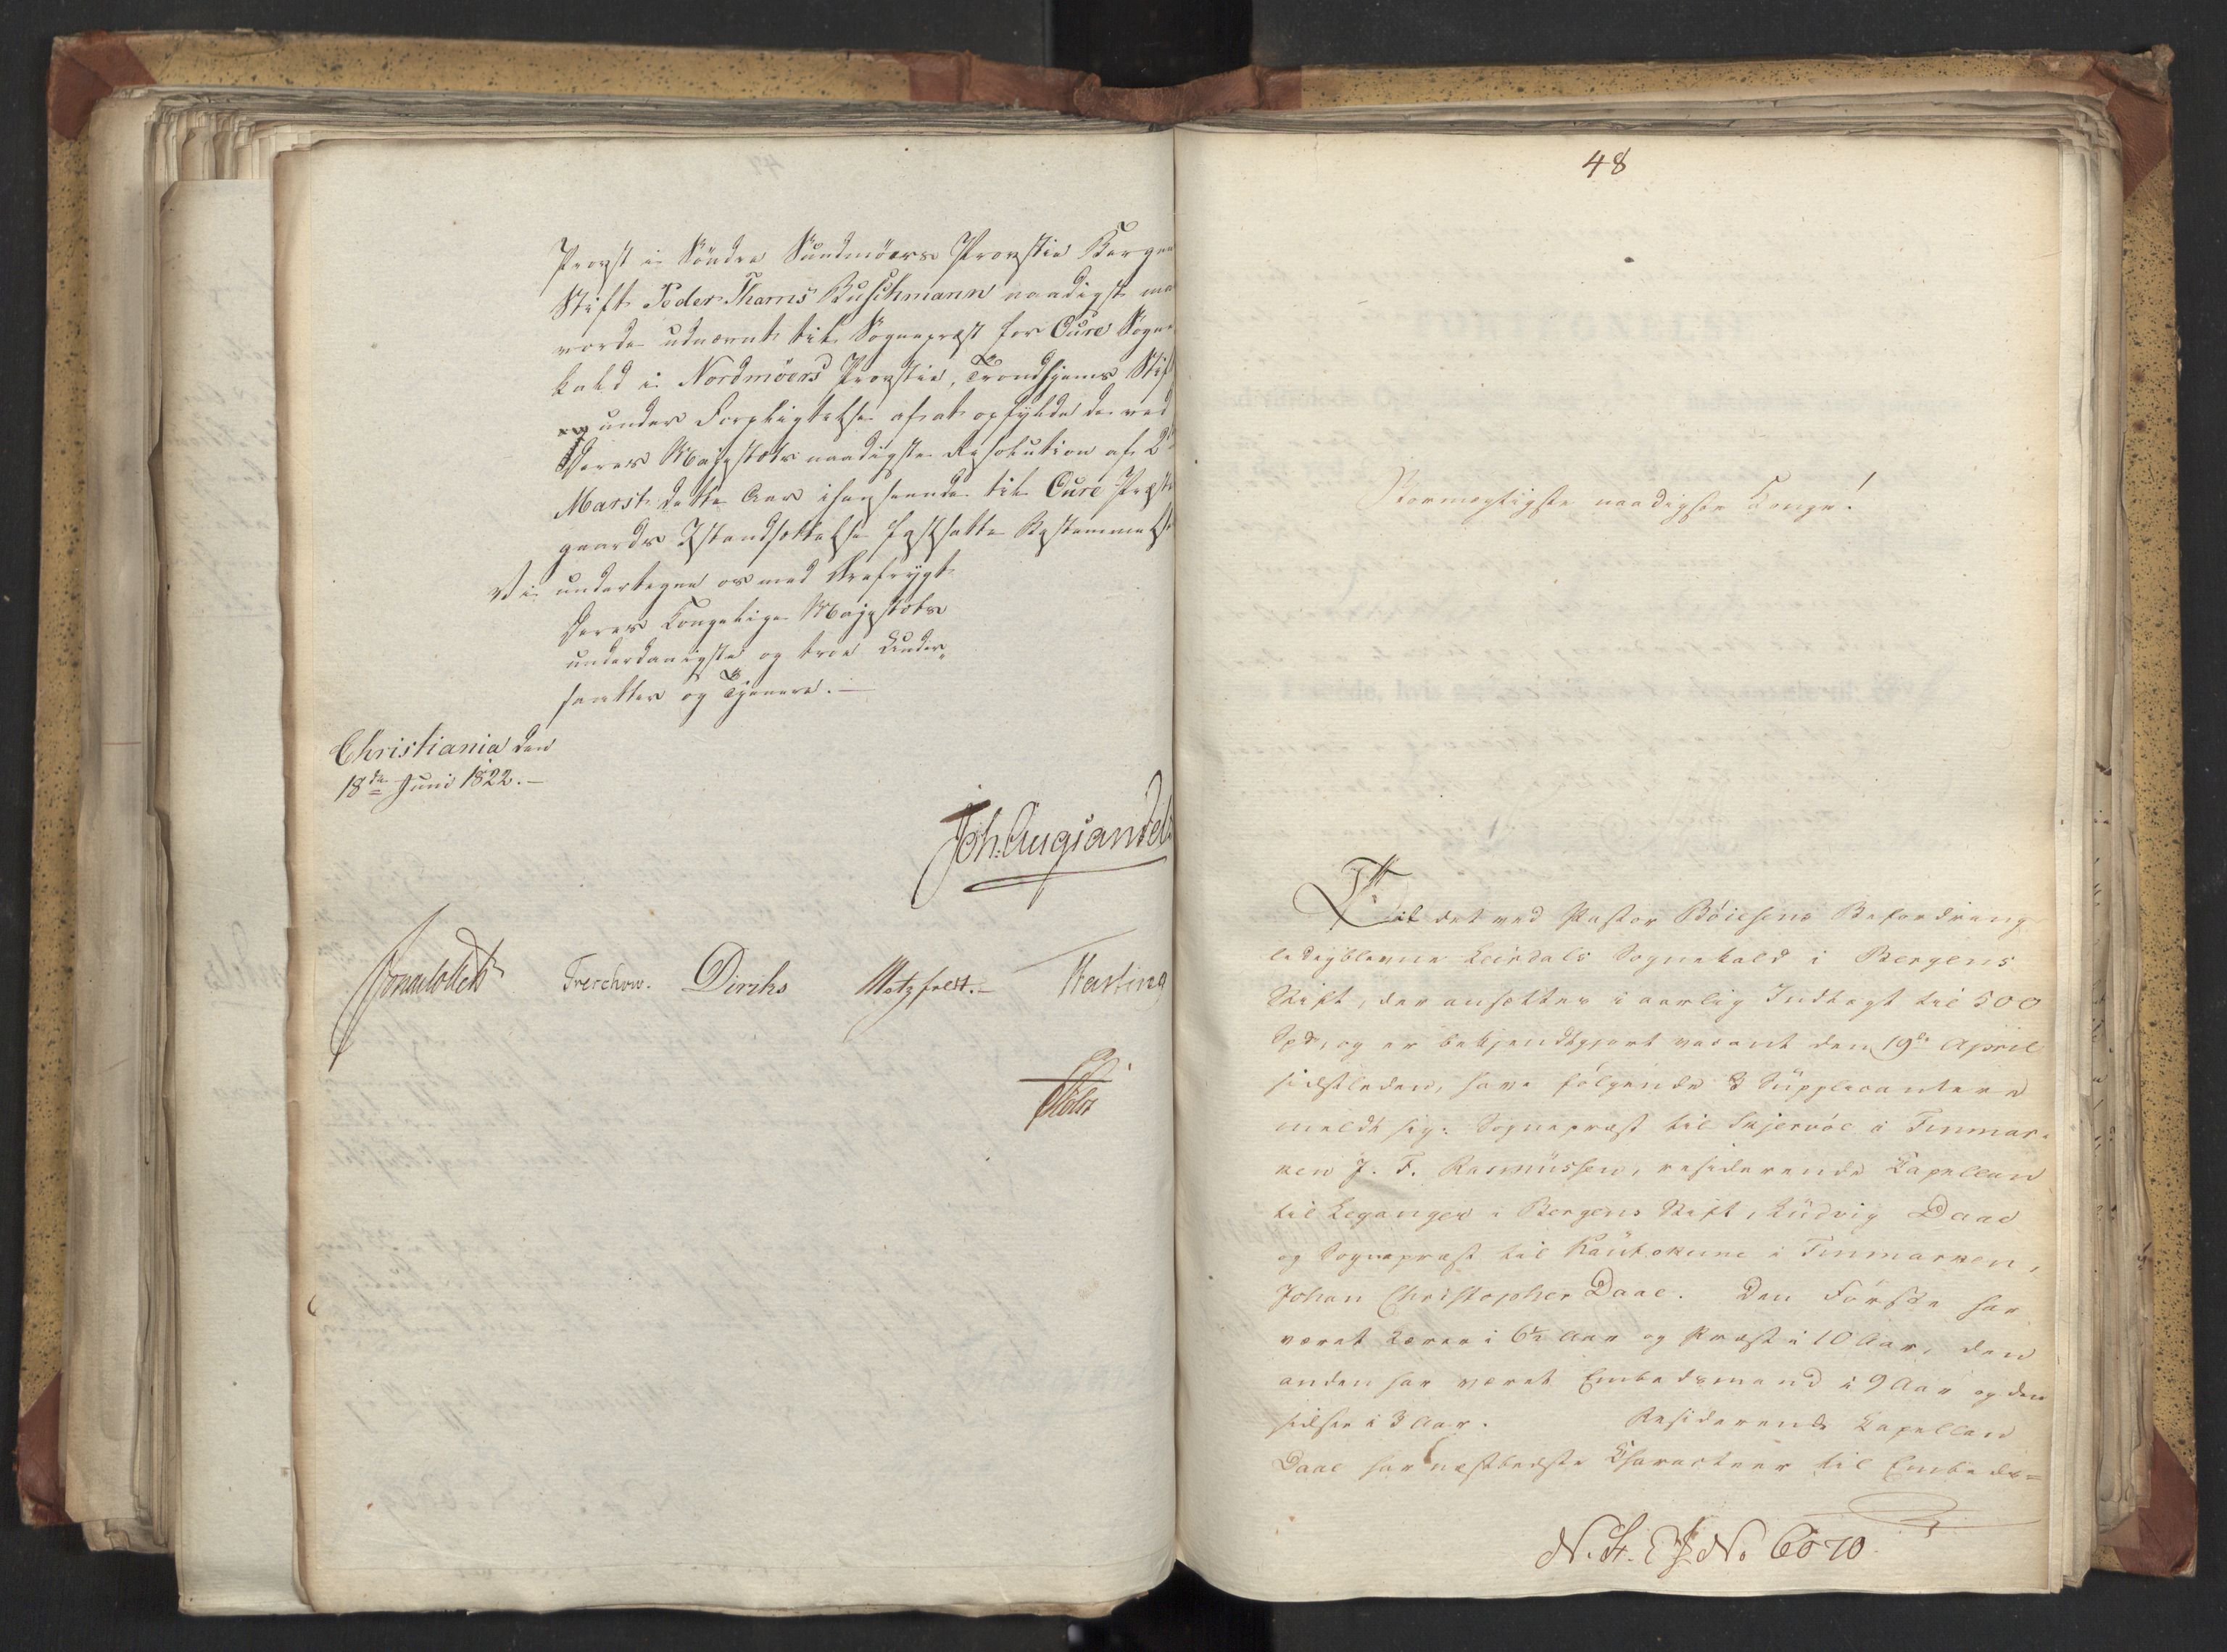 Provst i Söndre Sundmöers Provstie Bergens
Stift Peder Thams Buschmann naadigst maa
vorde udnævnt til Sognepræst for Oure Sogne
kald i Nordmöers Provstie, Trondhjems Stift
under Forpligtelse af at opfylde de ved
Deres Majestæts naadigste Resolution af 2
Marst dette Aar ihenseende til Oure Præste
gaards Istandsættelse fastsatte Bestemmelser
Vi undertegne os med Ærefrygt
Deres Kongelige Majestæts
underdanigste og troe Under-
saatter og Tjenere. —
Christiania den
18de Juni 1822. —
Joh. Aug: Sandels
Sommerhielm Treschow. Diriks Motzfeldt. — Fasting
Holst
48
Stormægtigste naadigste Konge!
Til det ved Pastor Böiesens Befordring
ledigblevne Leirdals Sognekald i Bergens
Stift, der ansættes i aarlig Indtægt til 500
Spd, og er bekjendtgjort vacant den 19de April
sidstleden, have følgende 3 Supplicantere
meldt sig: Sognepræst til Skjervöe i Finmar-
ken J. F. Rasmüssen, residerende Capellan
til Leganger i Bergens Stift, Lüdvig Daae
og Sognepræst til Kautokeino i Finmarken,
Johan Christopher Daae. Den Første har
været Lærer i 6½ Aar og Præst i 10 Aar, den
anden har været Embedsmand i 9 Aar og den
sidste i 3 Aar. Residerende Capellan
Daae har næstbedste Characteer til Embeds=